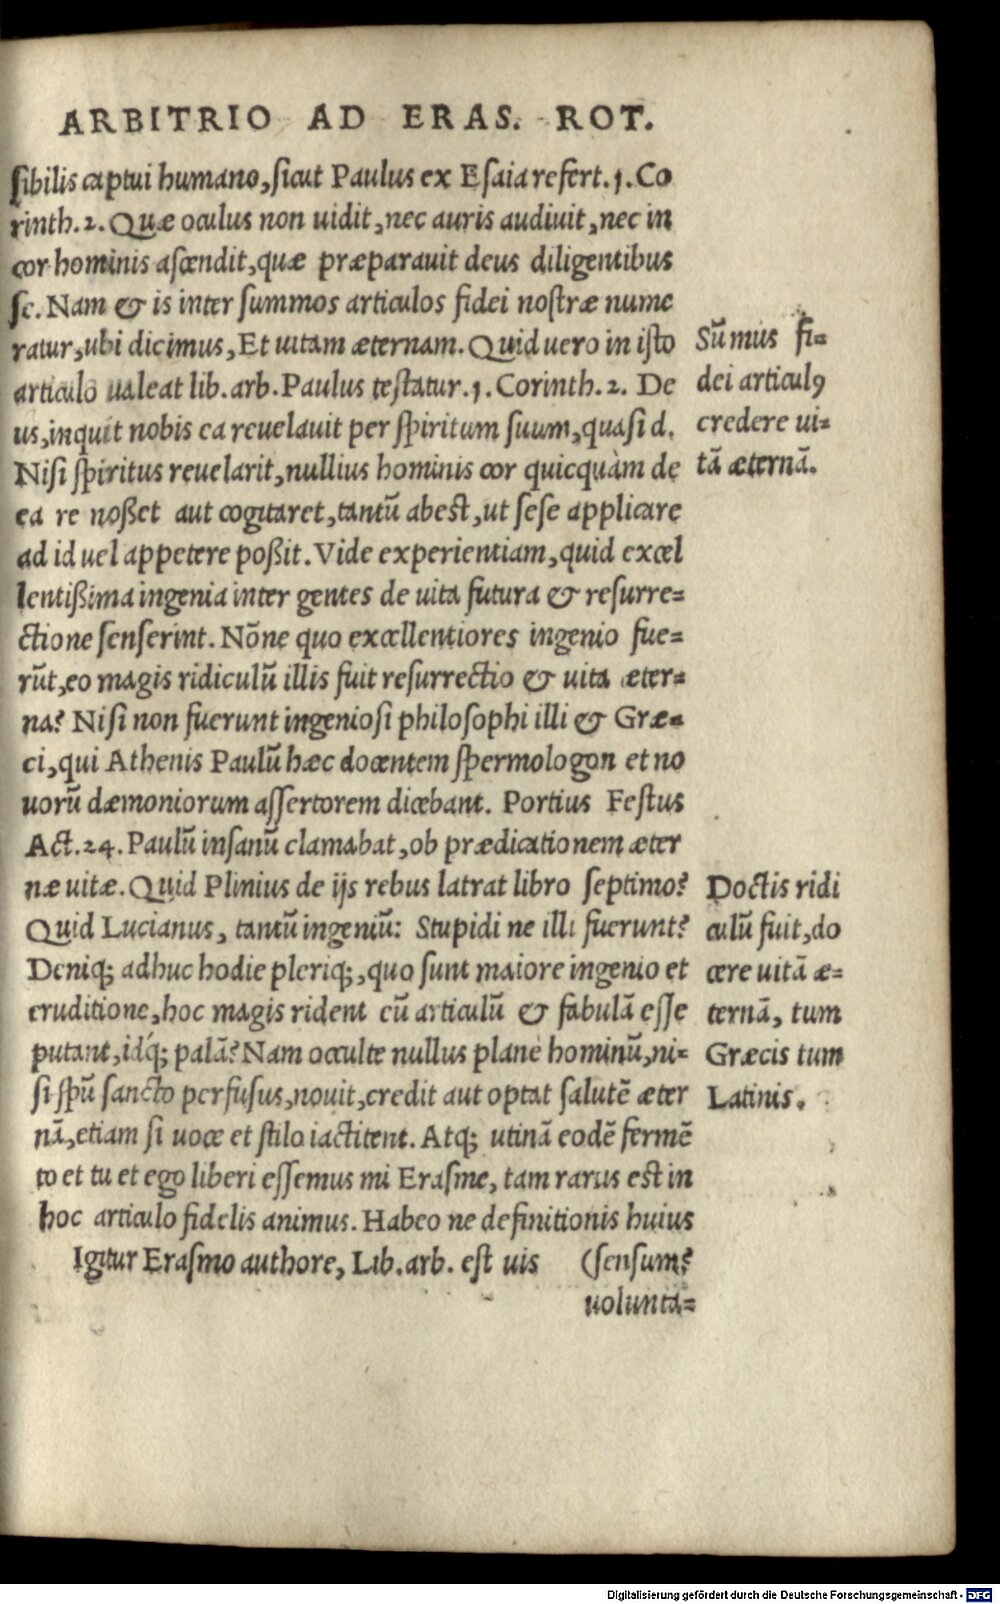 ARBITRIO AD ERAS. ROT.
sibilis captui humano, sicut Paulus ex Esaia refert. 1. Co
rinth. 2. Quæ oculus non uidit, nec auris audiuit, nec in
cor hominis ascendit, quæ præparauit deus diligentibus
se. Nam & is inter summos articulos fidei nostræ nume
ratur, ubi dicimus, Et uitam æternam. Quid uero in isto
articulo ualeat lib. arb. Paulus testatur. 1. Corinth. 2. De
us, inquit nobis ea reuelauit per spiritum suum, quasi d.
Nisi spiritus reuelarit, nullius hominis cor quicquàm de
ea re noßet aut cogitaret, tantũ abest, ut sese applicare
ad id uel appetere poßit. Vide experientiam, quid excel
lentißima ingenia inter gentes de uita futura & resurre=
ctione senserint. Nõne quo excellentiores ingenio fue=
rũt, eo magis ridiculũ illis fuit resurrectio & uita æter=
na? Nisi non fuerunt ingeniosi philosophi illi & Græ=
ci, qui Athenis Paulũ hæc docentem spermologon et no
uorũ dæmoniorum assertorem dicebant. Portius Festus
Act. 24. Paulũ insanũ clamabat, ob prædicationem æter
næ uitæ. Quid Plinius de ijs rebus latrat libro septimo?
Quid Lucianus, tantũ ingeniũ: Stupidi ne illi fuerunt?
Deniq; adhuc hodie pleriq;, quo sunt maiore ingenio et
eruditione, hoc magis rident eũ articulũ & fabulã esse
putant, idq́; palã? Nam occulte nullus planè hominũ, ni=
si spũ sancto perfusus, nouit, credit aut optat salutẽ æter
nã, etiam si uoce et stilo iactitent. Atq; utinã eodẽ fermẽ
to et tu et ego liberi essemus mi Erasme, tam rarus est in
hoc articulo fidelis animus. Habeo ne definitionis huius
Igitur Erasmo authore, Lib. arb. est uis (sensum?
uolunta=
Sũmus fi=
dei articulꝰ
credere ui=
tã æternã.
Doctis ridi
culũ fuit, do
cere uitã æ=
ternã, tum
Græcis tum
Latinis.
Digitalisierung gefördert durch die Deutsche Forschungsgemeinschaft - DFG